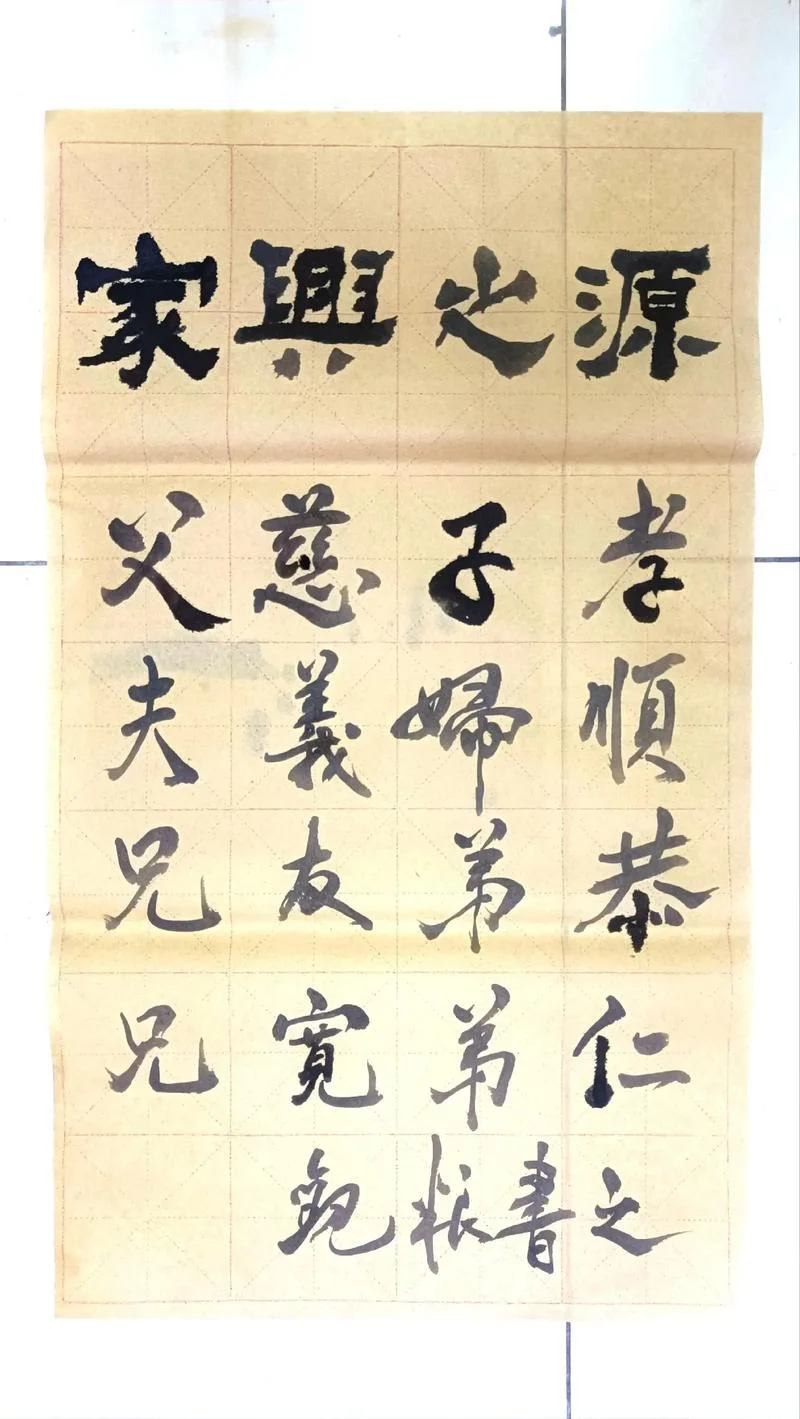 家興之源
父慈子孝
夫義婦順
兄友弟恭
兄寬弟仁
書之